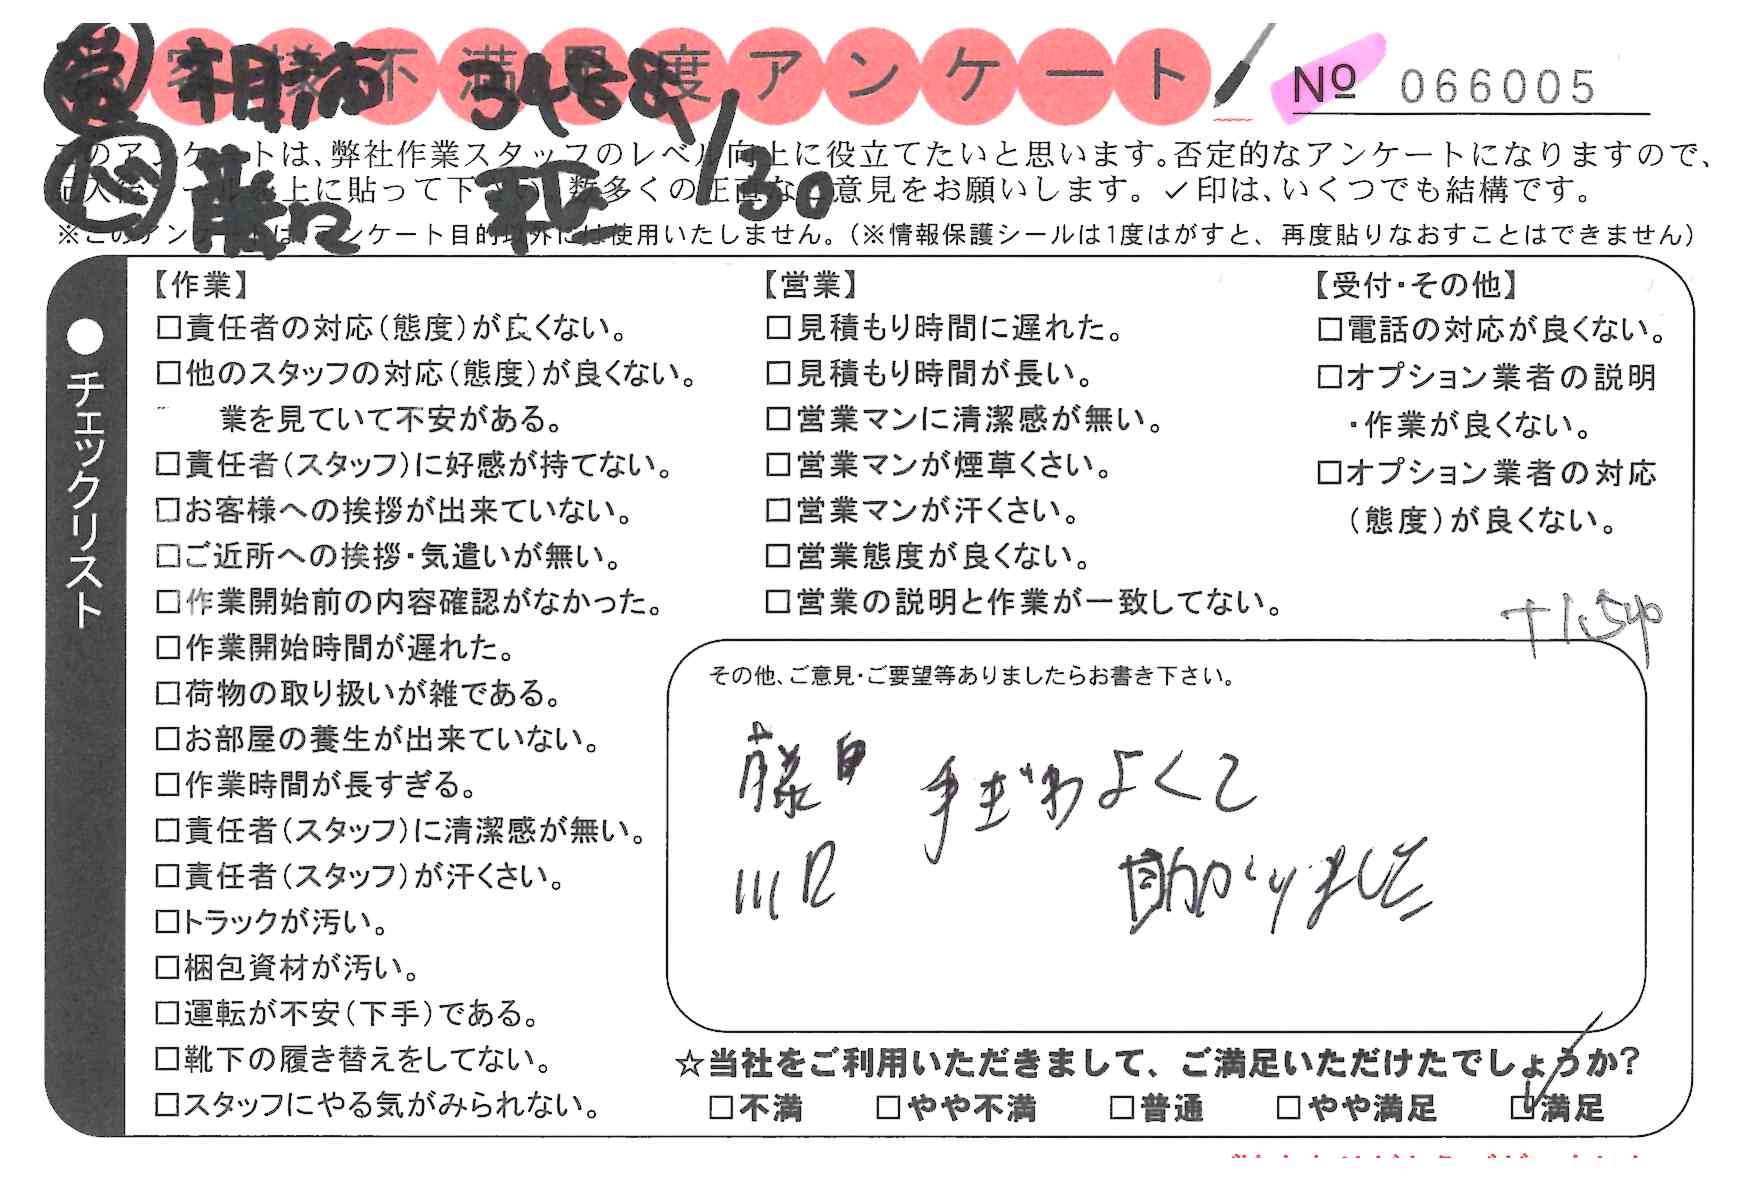 客様不満足度アンケート
相浦 3488
1/30
藤口 平
No 066005
このアンケートは、弊社作業スタッフのレベル向上に役立てたいと思います。否定的なアンケートになりますので、
上に貼って下さい 数多くの正直な 意見をお願いします。✓印は、いくつでも結構です。
※このアンケートは、アンケート目的以外には使用いたしません。(※情報保護シールは1度はがすと、再度貼りなおすことはできません)
●チェックリスト
【作業】
□責任者の対応(態度)が良くない。
□他のスタッフの対応(態度)が良くない。
業を見ていて不安がある。
□責任者(スタッフ)に好感が持てない。
□お客様への挨拶が出来ていない。
□ご近所への挨拶・気遣いが無い。
□作業開始前の内容確認がなかった。
□作業開始時間が遅れた。
□荷物の取り扱いが雑である。
□お部屋の養生が出来ていない。
□作業時間が長すぎる。
□責任者(スタッフ)に清潔感が無い。
□責任者(スタッフ)が汗くさい。
□トラックが汚い。
□梱包資材が汚い。
□運転が不安(下手)である。
□靴下の履き替えをしてない。
□スタッフにやる気がみられない。
【営業】
□見積もり時間に遅れた。
□見積もり時間が長い。
□営業マンに清潔感が無い。
□営業マンが煙草くさい。
□営業マンが汗くさい。
□営業態度が良くない。
□営業の説明と作業が一致してない。
【受付・その他】
□電話の対応が良くない。
□オプション業者の説明
・作業が良くない。
□オプション業者の対応
(態度)が良くない。
その他、ご意見・ご要望等ありましたらお書き下さい。
手ぎわよくて
川口
助かりました
☆当社をご利用いただきまして、ご満足いただけたでしょうか?
□不満 □やや不満 □普通 □やや満足 ☑満足